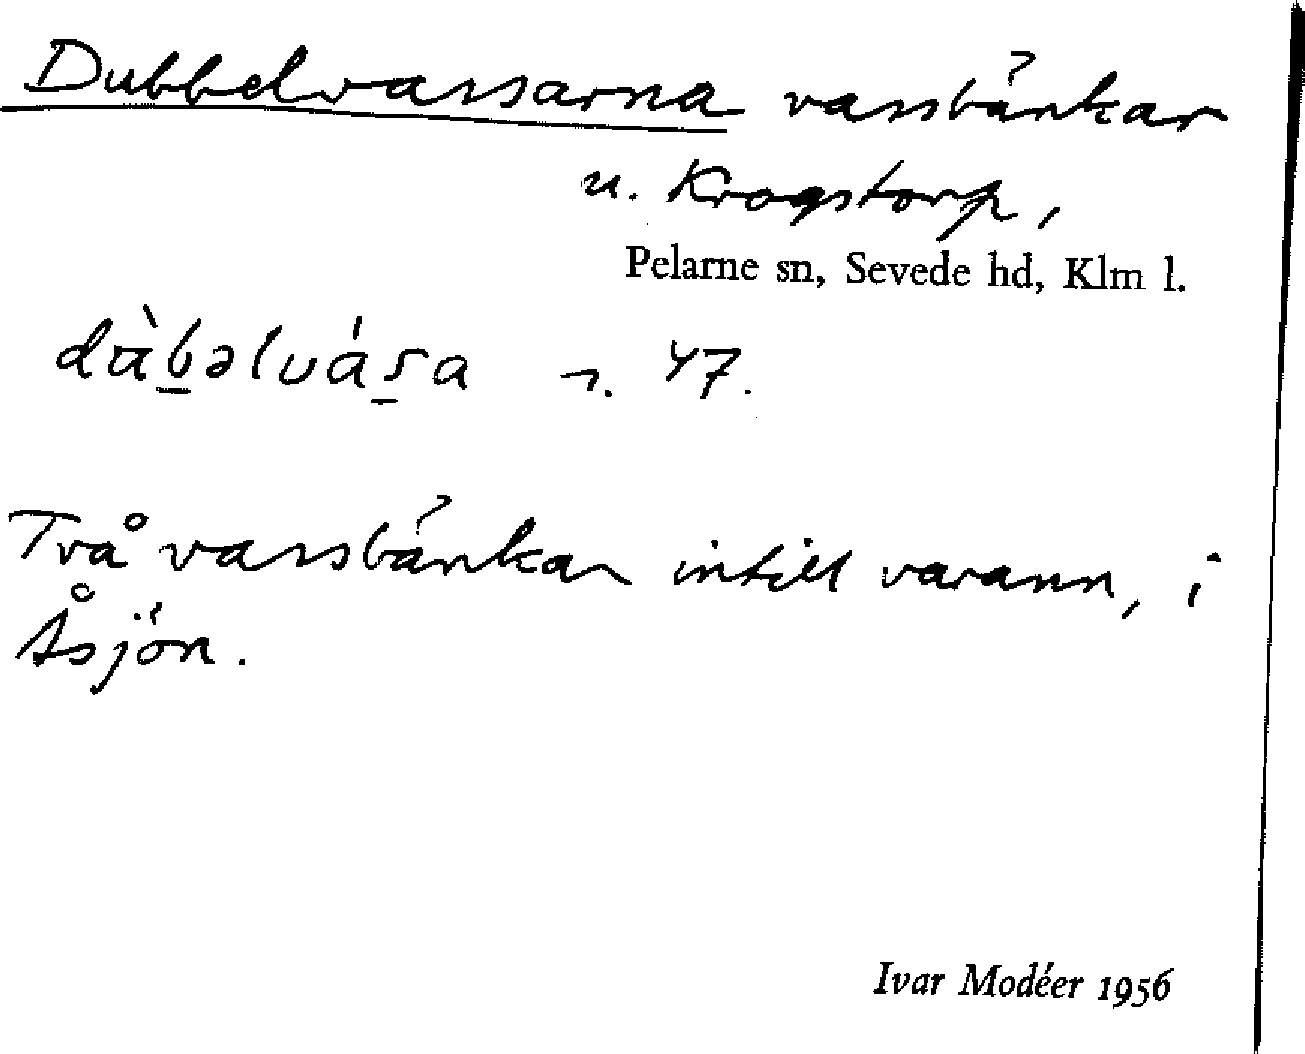 Dubbelvassarna vassbänkar
u. Krogstorp,
Pelarne sn, Sevede hd, Klm l.
dàb̲əlvás̲a 47.
Två vassbänkar intill varann, i
Åsjön.
Ivar Modéer 1956